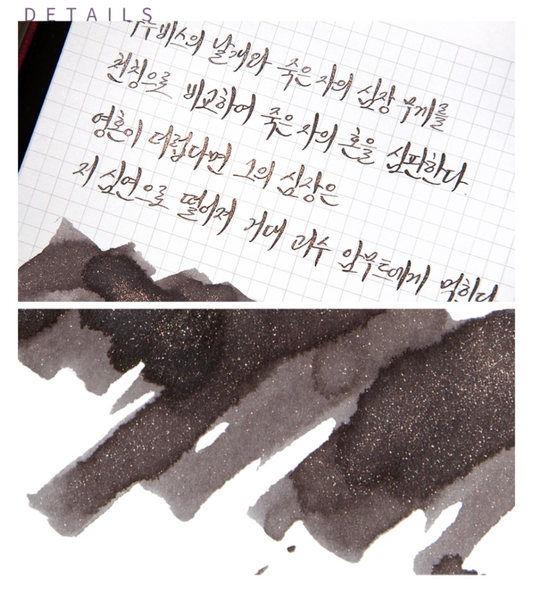 DETAILS
아누비스의 날개와 죽은 자의 심장 무게를
천칭으로 비교하여 죽은 자의 혼을 심판한다
영혼이 더럽다면 그의 심장은
저 심연으로 떨어져 거대 괴수 암무트에게 먹히다